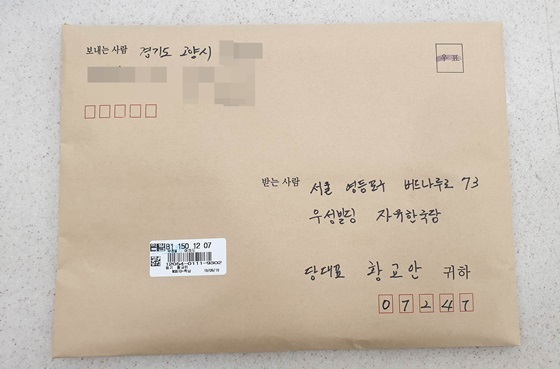 보내는 사람 경기도 고양시
우표
받는 사람 서울 영등포구 버드나루로 73
우성빌딩 자유한국당
81 150 12 07
12054-0111-9302
당대표 황교안 귀하
07247